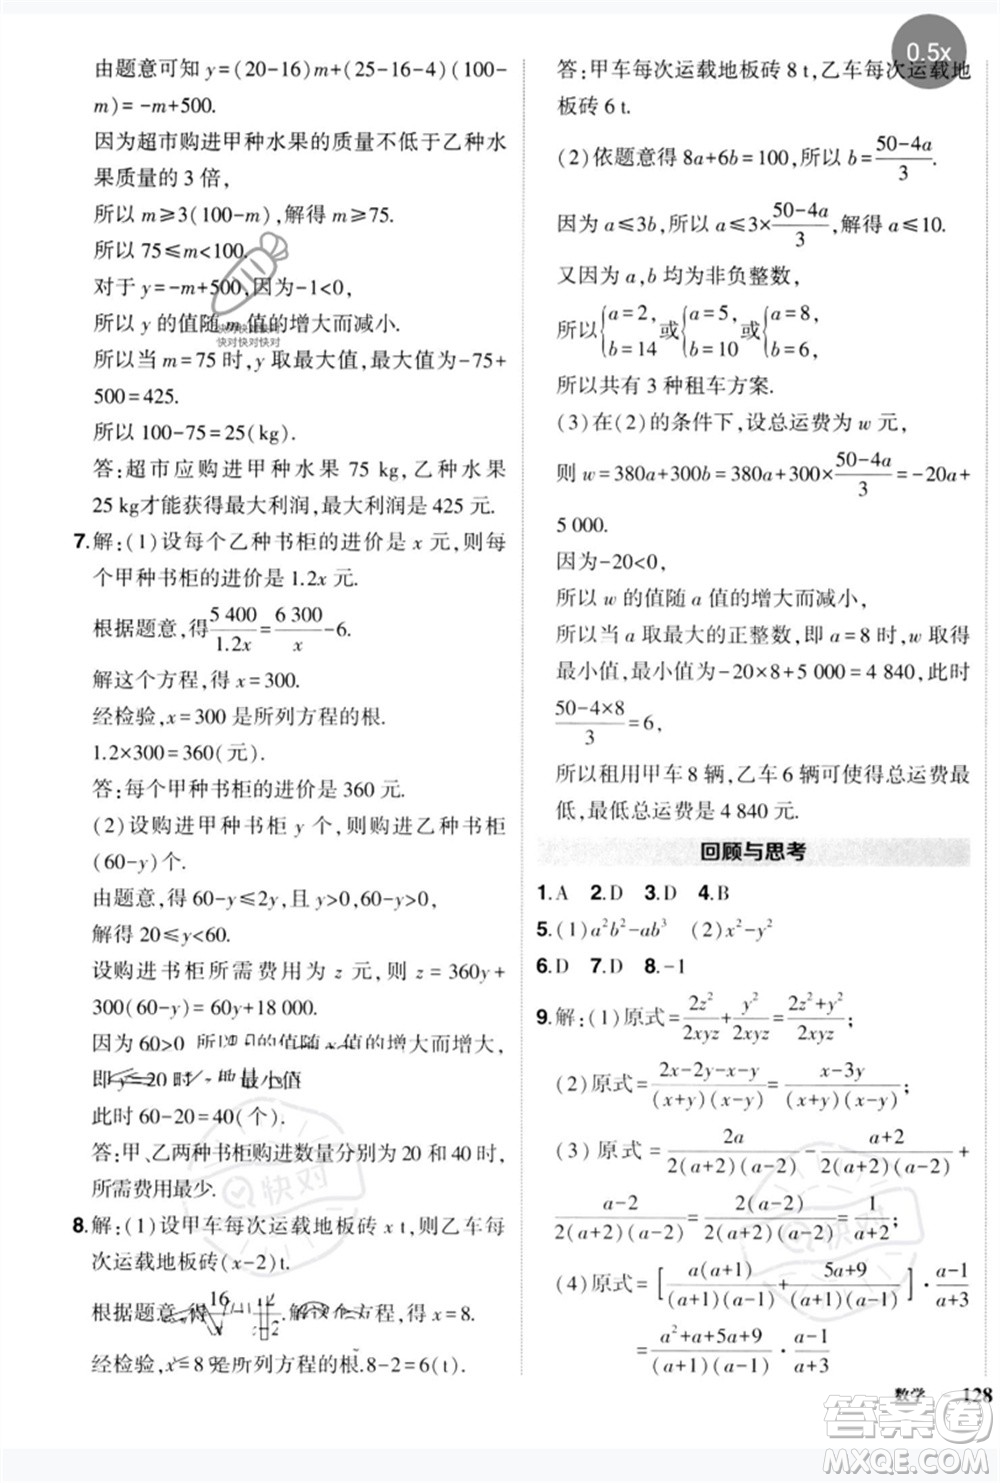 0.5x
由题意可知 y=(20-16)m+(25-16-4)(100-
m)=-m+500.
因为超市购进甲种水果的质量不低于乙种水
果质量的 3 倍,
所以 m≥3(100-m),解得 m≥75.
所以 75≤m<100.
对于 y=-m+500,因为-1<0,
所以 y 的值随 m 值的增大而减小.
快对快对快对
快对快对快对
所以当 m=75 时,y 取最大值,最大值为-75+
500=425.
所以 100-75=25(kg).
答:超市应购进甲种水果 75 kg,乙种水果
25 kg才能获得最大利润,最大利润是 425 元.
7.解:(1)设每个乙种书柜的进价是 x 元,则每
个甲种书柜的进价是 1.2x 元.
根据题意,得 5 400/1.2x = 6 300/x -6.
解这个方程,得 x=300.
经检验,x=300 是所列方程的根.
1.2×300=360(元).
答:每个甲种书柜的进价是 360 元.
(2)设购进甲种书柜 y 个,则购进乙种书柜
(60-y)个.
由题意,得 60-y≤2y,且 y>0,60-y>0,
解得 20≤y<60.
设购进书柜所需费用为 z 元,则 z=360y+
300(60-y)=60y+18 000.
因为 60>0,所以 的值随 值的增大而增大,
即 y=20 时, 最小值
此时 60-20=40(个).
答:甲、乙两种书柜购进数量分别为 20 和 40 时,
所需费用最少.
快对
8.解:(1)设甲车每次运载地板砖 x t,则乙车每
次运载地板砖(x-2)t.
根据题意,得 16/x 解这个方程,得 x=8.
经检验,x=8 是所列方程的根.8-2=6(t).
答:甲车每次运载地板砖 8 t,乙车每次运载地
板砖 6 t.
(2)依题意得 8a+6b=100,所以 b=(50-4a)/3.
因为 a≤3b,所以 a≤3×(50-4a)/3,解得 a≤10.
又因为 a,b 均为非负整数,
所以{a=2, b=14 或{a=5, b=10 或{a=8, b=6.
所以共有 3 种租车方案.
(3)在(2)的条件下,设总运费为 w 元,
则 w=380a+300b=380a+300×(50-4a)/3=-20a+
5 000.
因为-20<0,
所以 w 的值随 a 值的增大而减小,
所以当 a 取最大的正整数,即 a=8 时,w 取得
最小值,最小值为-20×8+5 000=4 840,此时
(50-4×8)/3=6,
所以租用甲车 8 辆,乙车 6 辆可使得总运费最
低,最低总运费是 4 840 元.
回顾与思考
1.A 2.D 3.D 4.B
5.(1)a²b²-ab³ (2)x²-y²
6.D 7.D 8.-1
9.解:(1)原式=2z²/2xyz+y²/2xyz=(2z²+y²)/2xyz;
(2)原式=(2x-2y-x-y)/(x+y)(x-y)=(x-3y)/(x+y)(x-y);
(3)原式=2a/2(a+2)(a-2)-(a+2)/2(a+2)(a-2)+
(a-2)/2(a+2)(a-2)=2(a-2)/2(a+2)(a-2)=1/(a+2);
(4)原式=[a(a+1)/(a+1)(a-1)+(5a+9)/(a+1)(a-1)]·(a-1)/(a+3)
=(a²+a+5a+9)/(a+1)(a-1)·(a-1)/(a+3)
数学 128
答案圈
MXQE.COM